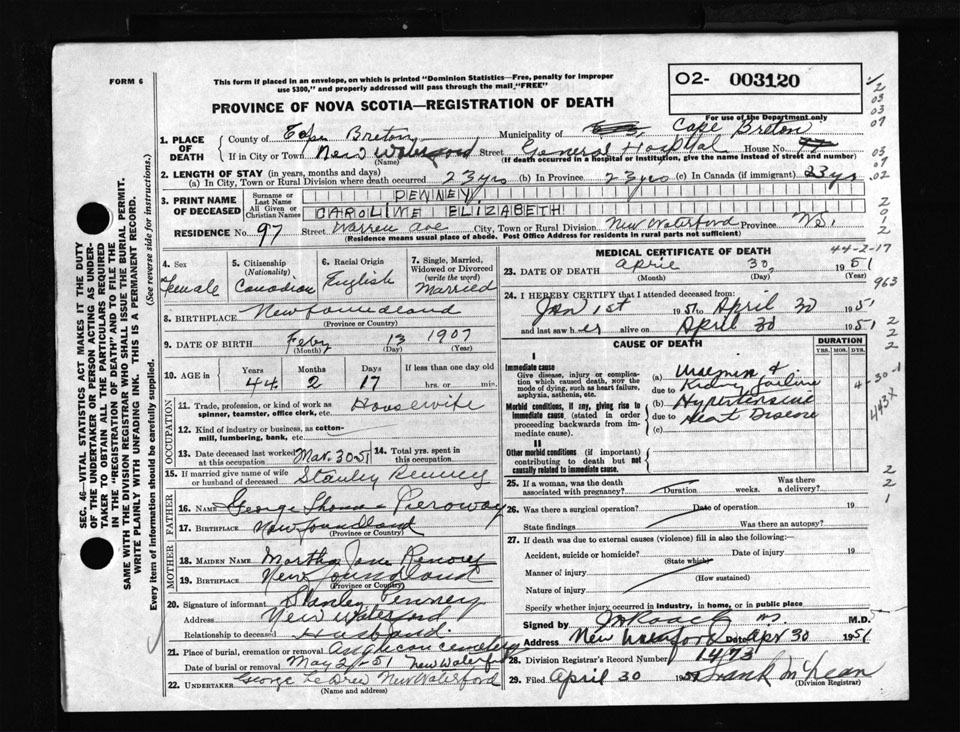 FORM 6
This form if placed in an envelope, on which is printed "Dominion Statistics—Free, penalty for improper
use $300," and properly addressed will pass through the mail, "FREE"
PROVINCE OF NOVA SCOTIA—REGISTRATION OF DEATH
O2- 003120
For use of the Department only
SEC. 46—VITAL STATISTICS ACT MAKES IT THE DUTY
OF THE UNDERTAKER OR PERSON ACTING AS UNDER-
TAKER TO OBTAIN ALL THE PARTICULARS REQUIRED
IN THE "REGISTRATION OF DEATH" AND TO FILE THE
SAME WITH THE DIVISION REGISTRAR WHO SHALL ISSUE THE BURIAL PERMIT.
WRITE PLAINLY WITH UNFADING INK. THIS IS A PERMANENT RECORD.
Every item of information should be carefully supplied. (See reverse side for instructions.)
1. PLACE OF DEATH
County of Cape Breton Municipality of Cape Breton
If in City or Town New Waterford Street General Hospital House No.
(Name) (If death occurred in a hospital or institution, give the name instead of street and number)
2. LENGTH OF STAY (in years, months and days)
(a) In City, Town or Rural Division where death occurred 23 yrs (b) In Province 23 yrs (c) In Canada (if immigrant) 23 yrs
3. PRINT NAME OF DECEASED
Surname or Last Name PENNEY
All Given or Christian Names CAROLINE ELIZABETH
RESIDENCE No. 97 Street Warren Ave City, Town or Rural Division New Waterford Province N.S.
(Residence means usual place of abode. Post Office Address for residents in rural parts not sufficient)
4. Sex Female
5. Citizenship (Nationality) Canadian
6. Racial Origin English
7. Single, Married, Widowed or Divorced (write the word) Married
8. BIRTHPLACE Newfoundland
(Province or Country)
9. DATE OF BIRTH Feby 13 1907
(Month) (Day) (Year)
10. AGE in Years 44 Months 2 Days 17 If less than one day old hrs. or min.
OCCUPATION
11. Trade, profession, or kind of work as spinner, teamster, office clerk, etc. Housewife
12. Kind of industry or business, as cotton-mill, lumbering, bank, etc.
13. Date deceased last worked at this occupation Mar. 30-51 14. Total yrs. spent in this occupation
15. If married give name of wife or husband of deceased Stanley Penney
FATHER
16. Name George Thomas Pieroway
17. BIRTHPLACE Newfoundland
(Province or Country)
MOTHER
18. MAIDEN NAME Martha Jane
19. BIRTHPLACE Newfoundland
(Province or Country)
20. Signature of informant Stanley Penney
Address New Waterford
Relationship to deceased Husband
21. Place of burial, cremation or removal Anglican cemetery
Date of burial or removal May 2-51 New Waterford
22. UNDERTAKER George LeDrew New Waterford
(Name and address)
MEDICAL CERTIFICATE OF DEATH
44-2-17
23. DATE OF DEATH April 30, 1951
(Month) (Day) (Year)
24. I HEREBY CERTIFY that I attended deceased from:
Jan 1st 1951 to April 30 1951
and last saw her alive on April 30 1951
CAUSE OF DEATH
DURATION
YRS. MOS. DYS.
I
Immediate cause
Give disease, injury or complication which caused death, NOT the mode of dying, such as heart failure, asphyxia, asthenia, etc.
(a) Uremia &
due to Kidney failure
Morbid conditions, if any, giving rise to immediate cause. (stated in order proceeding backwards from immediate cause).
(b) Hypertensive
due to Heart Disease
(c)
II
Other morbid conditions (if important) contributing to death but not causally related to immediate cause.
25. If a woman, was the death associated with pregnancy? Duration weeks. Was there a delivery?
26. Was there a surgical operation? Date of operation 19
State findings Was there an autopsy?
27. If death was due to external causes (violence) fill in also the following:
Accident, suicide or homicide? Date of injury 19
(State which)
Manner of injury
(How sustained)
Nature of injury
Specify whether injury occurred in industry, in home, or in public place
Signed by M.D.
Address New Waterford Date Apr 30 1951
28. Division Registrar's Record Number 1473
29. Filed April 30 1951 Frank McLean
(Division Registrar)
963
4-30-1
443X